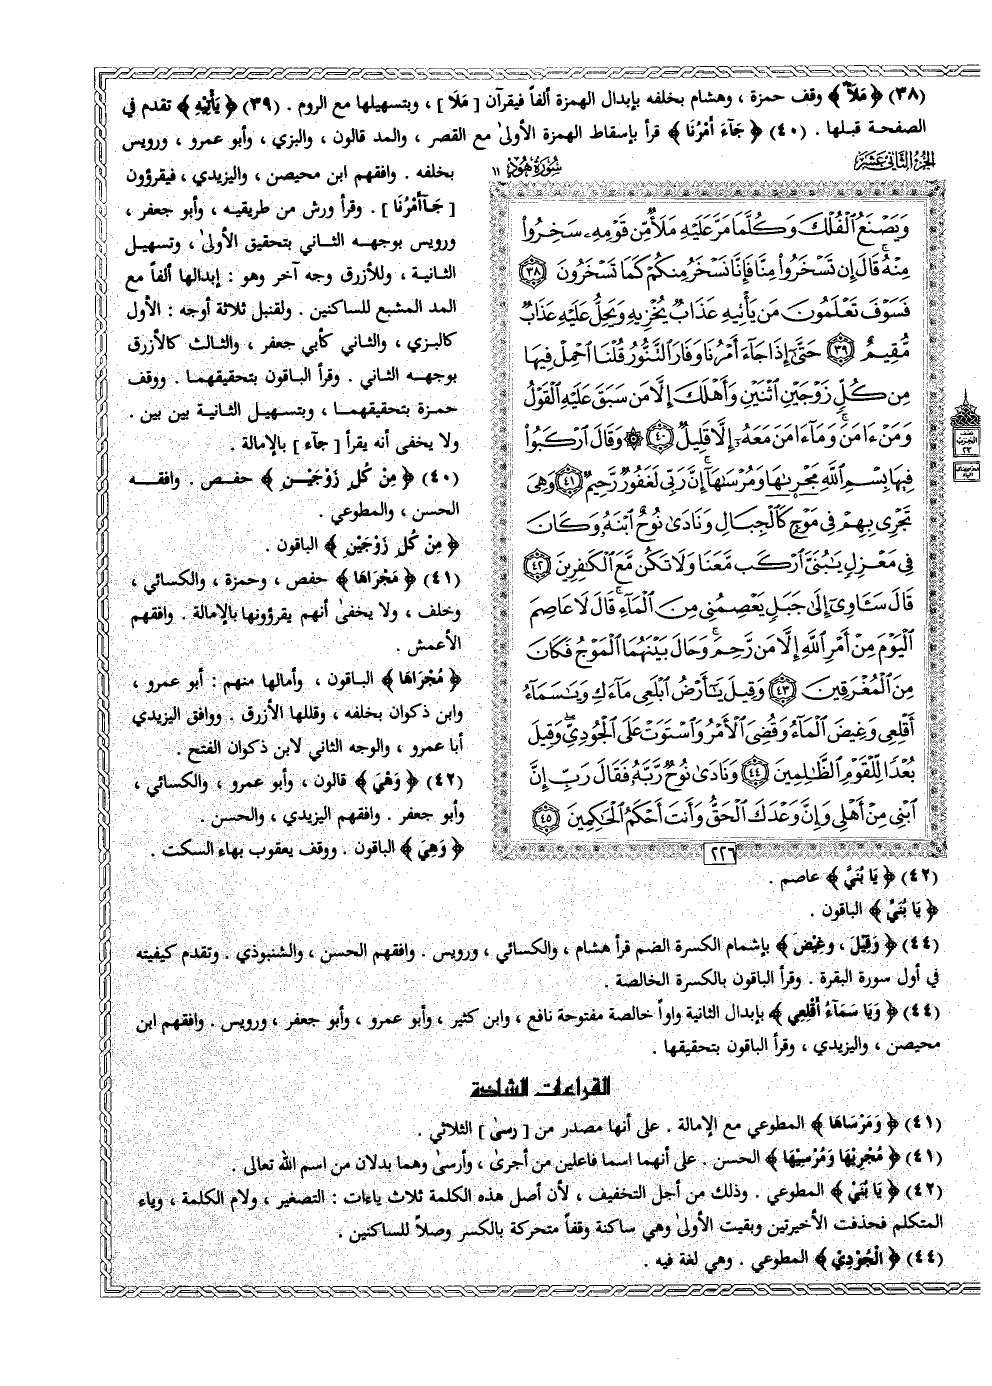 (٣٨) ﴿ مَلَأٌ ﴾ وقف حمزة ، وهشام بخلفه بإبدال الهمزة ألفاً فيقرآن [ مَلَا ] ، وبتسهيلها مع الروم . (٣٩) ﴿ يَأْتِيْهِ ﴾ تقدم في
الصفحة قبلها . (٤٠) ﴿ جَآءَ أَمْرُنَا ﴾ قرأ بإسقاط الهمزة الأولىٰ مع القصر ، والمد قالون ، والبزي ، وأبو عمرو ، ورويس
بخلفه . وافقهم ابن محيصن ، واليزيدي ، فيقرؤون
[ جَـاأَمْرُنَا ] . وقرأ ورش من طريقيه ، وأبو جعفر ،
ورويس بوجهه الثاني بتحقيق الأولىٰ ، وتسهيل
الثانية ، وللأزرق وجه آخر وهو : إبدالها ألفاً مع
المد المشبع للساكنين . ولقنبل ثلاثة أوجه : الأول
كالبزي ، والثاني كأبي جعفر ، والثالث كالأزرق
بوجهه الثاني . وقرأ الباقون بتحقيقهما . ووقف
حمزة بتحقيقهما ، وبتسهيل الثانية بين بين .
ولا يخفى أنه يقرأ [ جآء ] بالإمالة .
(٤٠) ﴿ مِنْ كُلٍّ زَوْجَيْـنِ ﴾ حفـص . وافقـه
الحسن ، والمطوعي .
﴿ مِنْ كُلِّ زَوْجَيْنِ ﴾ الباقون .
(٤١) ﴿ مَجْرَاهَا ﴾ حفص ، وحمزة ، والكسائي ،
وخلف ، ولا يخفىٰ أنهم يقرؤونها بالإمالة . وافقهم
الأعمش .
﴿ مُجْرَاهَا ﴾ الباقون ، وأمالها منهم : أبو عمرو ،
وابن ذكوان بخلفه ، وقللها الأزرق . ووافق اليزيدي
أبا عمرو ، والوجه الثاني لابن ذكوان الفتح .
(٤٢) ﴿ وَهْيَ ﴾ قالون ، وأبو عمرو ، والكسائي ،
وأبو جعفر . وافقهم اليزيدي ، والحسن .
﴿ وَهِيَ ﴾ الباقون . ووقف يعقوب بهاء السكت .
الجزء الثاني عشر
سورة هود ١١
وَيَصْنَعُ ٱلْفُلْكَ وَكُلَّمَا مَرَّ عَلَيْهِ مَلَأٌ مِّن قَوْمِهِۦ سَخِرُوا۟
مِنْهُ ۚ قَالَ إِن تَسْخَرُوا۟ مِنَّا فَإِنَّا نَسْخَرُ مِنكُمْ كَمَا تَسْخَرُونَ ٣٨
فَسَوْفَ تَعْلَمُونَ مَن يَأْتِيهِ عَذَابٌ يُخْزِيهِ وَيَحِلُّ عَلَيْهِ عَذَابٌ
مُّقِيمٌ ٣٩ حَتَّىٰٓ إِذَا جَآءَ أَمْرُنَا وَفَارَ ٱلتَّنُّورُ قُلْنَا ٱحْمِلْ فِيهَا
مِن كُلٍّ زَوْجَيْنِ ٱثْنَيْنِ وَأَهْلَكَ إِلَّا مَن سَبَقَ عَلَيْهِ ٱلْقَوْلُ
وَمَنْ ءَامَنَ ۚ وَمَآ ءَامَنَ مَعَهُۥٓ إِلَّا قَلِيلٌ ٤٠ ۞ وَقَالَ ٱرْكَبُوا۟
فِيهَا بِسْمِ ٱللَّهِ مَجْر۪ىٰهَا وَمُرْسَىٰهَآ ۚ إِنَّ رَبِّى لَغَفُورٌ رَّحِيمٌ ٤١ وَهِىَ
تَجْرِى بِهِمْ فِى مَوْجٍ كَٱلْجِبَالِ وَنَادَىٰ نُوحٌ ٱبْنَهُۥ وَكَانَ
فِى مَعْزِلٍ يَـٰبُنَىَّ ٱرْكَب مَّعَنَا وَلَا تَكُن مَّعَ ٱلْكَـٰفِرِينَ ٤٢
قَالَ سَـَٔاوِىٓ إِلَىٰ جَبَلٍ يَعْصِمُنِى مِنَ ٱلْمَآءِ ۚ قَالَ لَا عَاصِمَ
ٱلْيَوْمَ مِنْ أَمْرِ ٱللَّهِ إِلَّا مَن رَّحِمَ ۚ وَحَالَ بَيْنَهُمَا ٱلْمَوْجُ فَكَانَ
مِنَ ٱلْمُغْرَقِينَ ٤٣ وَقِيلَ يَـٰٓأَرْضُ ٱبْلَعِى مَآءَكِ وَيَـٰسَمَآءُ
أَقْلِعِى وَغِيضَ ٱلْمَآءُ وَقُضِىَ ٱلْأَمْرُ وَٱسْتَوَتْ عَلَى ٱلْجُودِىِّ ۖ وَقِيلَ
بُعْدًا لِّلْقَوْمِ ٱلظَّـٰلِمِينَ ٤٤ وَنَادَىٰ نُوحٌ رَّبَّهُۥ فَقَالَ رَبِّ إِنَّ
ٱبْنِى مِنْ أَهْلِى وَإِنَّ وَعْدَكَ ٱلْحَقُّ وَأَنتَ أَحْكَمُ ٱلْحَـٰكِمِينَ ٤٥
٢٢٦
(٤٢) ﴿ يَا بُنَيَّ ﴾ عاصم .
﴿ يَا بُنَيِّ ﴾ الباقون .
(٤٤) ﴿ وَقِيْلَ ، وغِيْضَ ﴾ بإشمام الكسرة الضم قرأ هشام ، والكسائي ، ورويس . وافقهم الحسن ، والشنبوذي . وتقدم كيفيته
في أول سورة البقرة . وقرأ الباقون بالكسرة الخالصة .
(٤٤) ﴿ وَيَا سَمَآءُ أَقْلِعِي ﴾ بإبدال الثانية واواً خالصة مفتوحة نافع ، وابن كثير ، وأبو عمرو ، وأبو جعفر ، ورويس . وافقهم ابن
محيصن ، واليزيدي ، وقرأ الباقون بتحقيقها .
القراءات الشاذة
(٤١) ﴿ وَمَرْسَاهَا ﴾ المطوعي مع الإمالة . على أنها مصدر من [ رسىٰ ] الثلاثي .
(٤١) ﴿ مُجْرِيْهَا وَمُرْسِيْهَا ﴾ الحسن . على أنهما اسما فاعلين من أجرىٰ ، وأرسىٰ وهما بدلان من اسم الله تعالى .
(٤٢) ﴿ يَا بُنَيْ ﴾ المطوعي . وذلك من أجل التخفيف ، لأن أصل هذه الكلمة ثلاث ياءات : التصغير ، ولام الكلمة ، وياء
المتكلم فحذفت الأخيرتين وبقيت الأولىٰ وهي ساكنة وقفاً متحركة بالكسر وصلاً للساكنين .
(٤٤) ﴿ الْجُوْدِيْ ﴾ المطوعي . وهي لغة فيه .